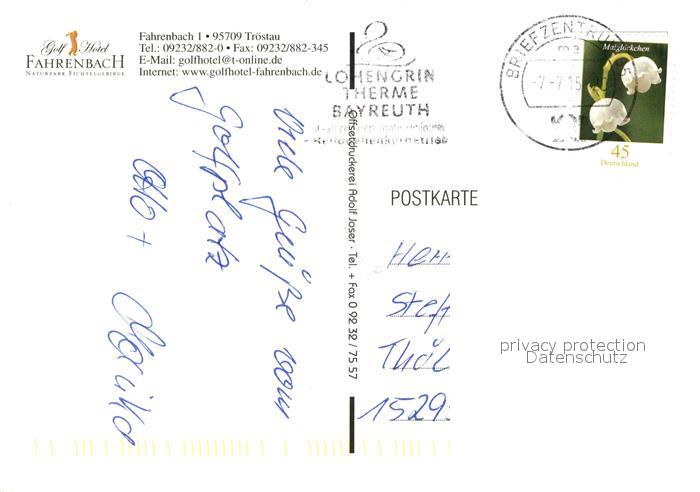 Golf Hotel
FAHRENBACH
NATURPARK FICHTELGEBIRGE
Fahrenbach 1 • 95709 Tröstau
Tel.: 09232/882-0 • Fax: 09232/882-345
E-Mail: golfhotel@t-online.de
Internet: www.golfhotel-fahrenbach.de
LOHENGRIN
THERME
BAYREUTH
BRIEFZENTRUM
Maiglöckchen
45
Deutschland
Viele Grüße vom
Golfplatz
Otto +
Offsetdruckerei Adolf Joser · Tel. + Fax 0 92 32 / 75 57
POSTKARTE
Herr
Steff
Thäl
1529
privacy protection
Datenschutz